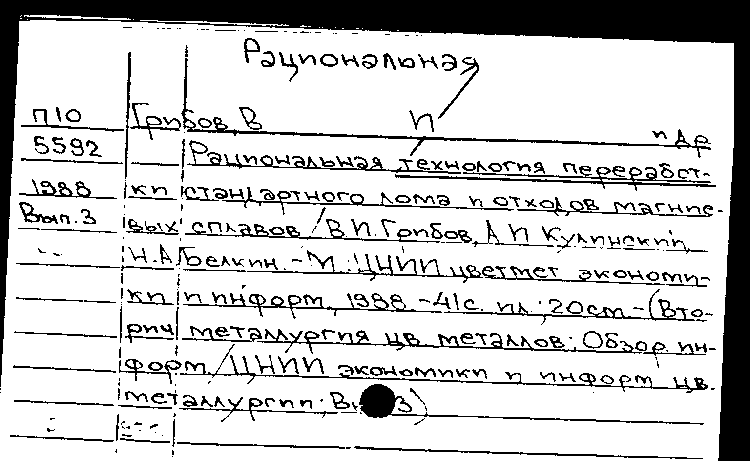 Рациональная
П10 Грибов, В П и др
5592 Рациональная технология переработ-
1988 ки стандартного лома и отходов магние-
Вып.3 вых сплавов / В.П. Грибов, А И Кулинский,
Н.А. Белкин. - М.: ЦНИИ цветмет экономи-
ки и информ, 1988. - 41с. ил; 20см - (Вто-
рич металлургия цв. металлов: Обзор. ин-
форм / ЦНИИ экономики и информ цв.
металлургии; В 3)